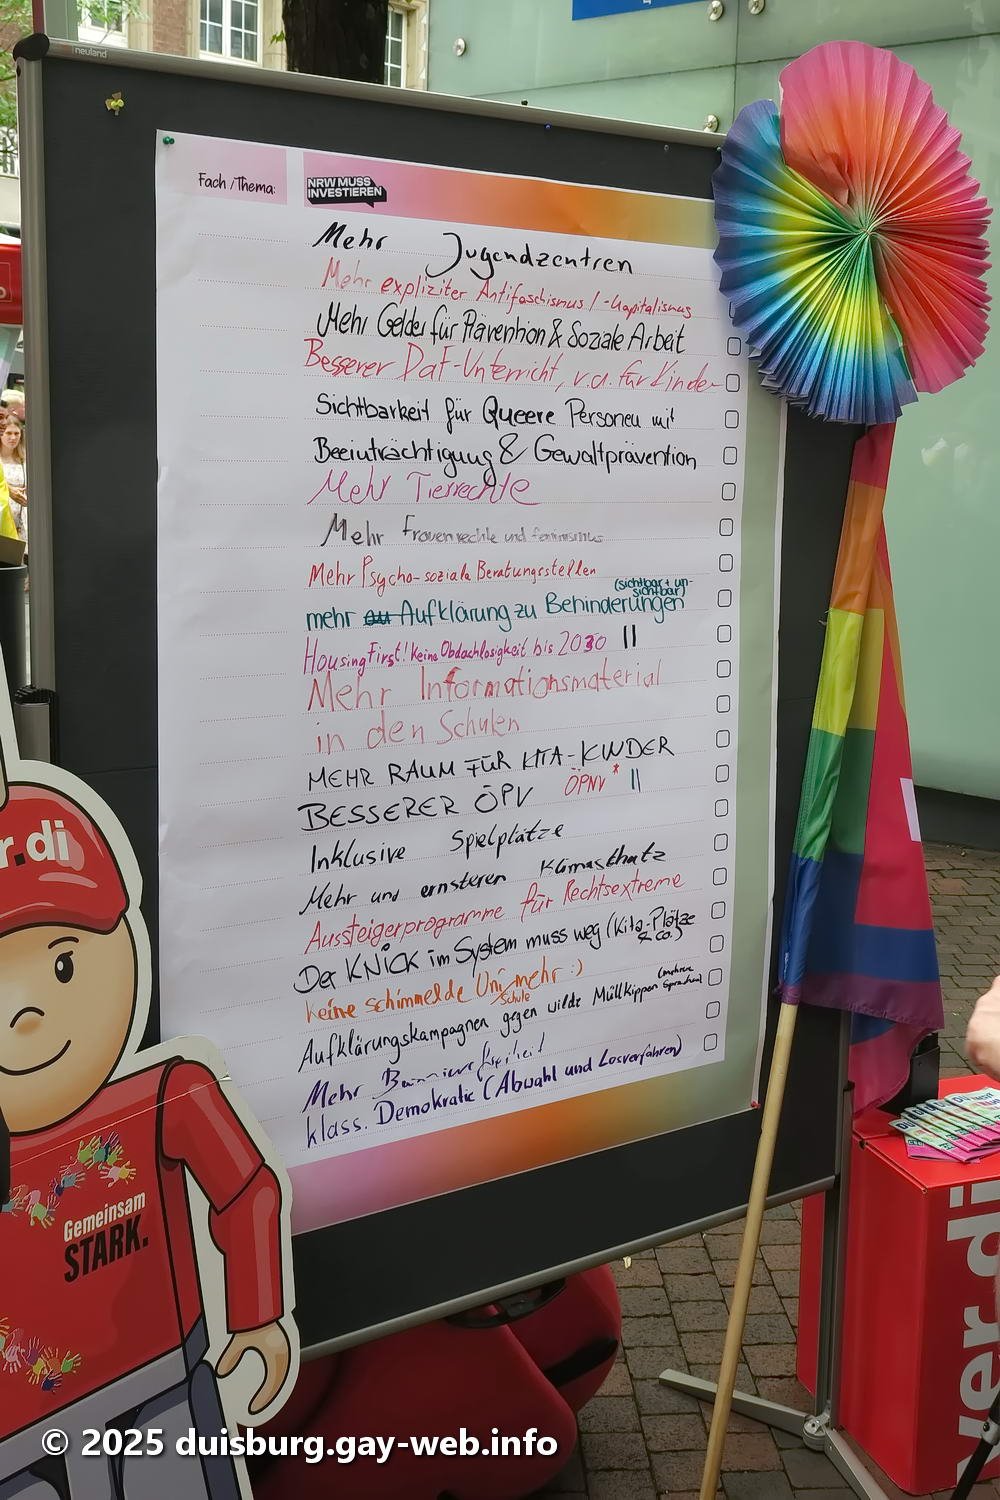 neuland
Fach/Thema:
NRW MUSS
INVESTIEREN
Mehr Jugendzentren
Mehr expliziter Antifaschismus/-Kapitalismus
Mehr Gelder für Prävention & Soziale Arbeit
Besserer DaF-Unterricht, v.a. für Kinder
Sichtbarkeit für Queere Personen mit
Beeinträchtigung & Gewaltprävention
Mehr Tierrechte
Mehr Frauenrechte und feminismus
Mehr Psycho-soziale Beratungsstellen
(sichtbar + un-
sichtbar)
mehr Aufklärung zu Behinderungen
Housing First! Keine Obdachlosigkeit bis 2030 ||
Mehr Informationsmaterial
in den Schulen
MEHR RAUM FÜR KITA-KINDER
BESSERER ÖPV ÖPNV* ||
Inklusive Spielplätze
Mehr und ernsteren Klimaschutz
Aussteigerprogramme für Rechtsextreme
Der KNICK im System muss weg (Kita-Plätze
& co.)
Keine schimmelde Uni mehr :)
Schule
Aufklärungskampagnen gegen wilde Müllkippen (mehrere
Sprachen)
Mehr Barrierefreiheit
klass. Demokratie (Abwahl und Losverfahren)
r.di
Gemeinsam
STARK.
ver.di
© 2025 duisburg.gay-web.info